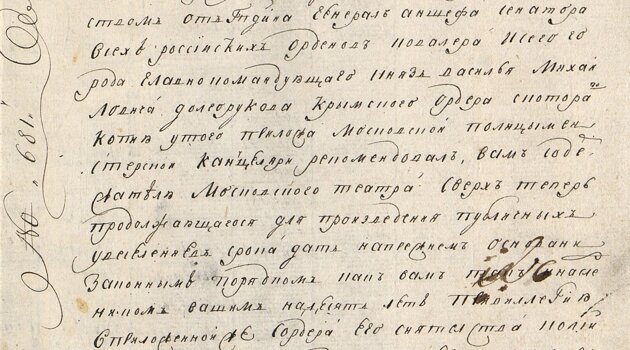 ством отъ Гдина Генералъ аншефа сенатора
всехъ россiйскихъ орденовъ ковалера И сего го
рода Главнокомандующаго Князь василья Михаи
ловича долгорукова Крымского ордера с котора
Копия у того приложа Московской полицымеи
стерской Канцеляри, рекомендовалъ, вамъ соде
ржателю Московского театра сверхъ теперь
продолжающагося для произведения публичныхъ
увеселениевъ срока дать на прежнемъ основани
Законнымъ порядкомъ какъ вамъ такъ и насле
никомъ вашимъ на десять летъ Привиллегию
с приложенной с ордера его сиятелства копий
№ 681.